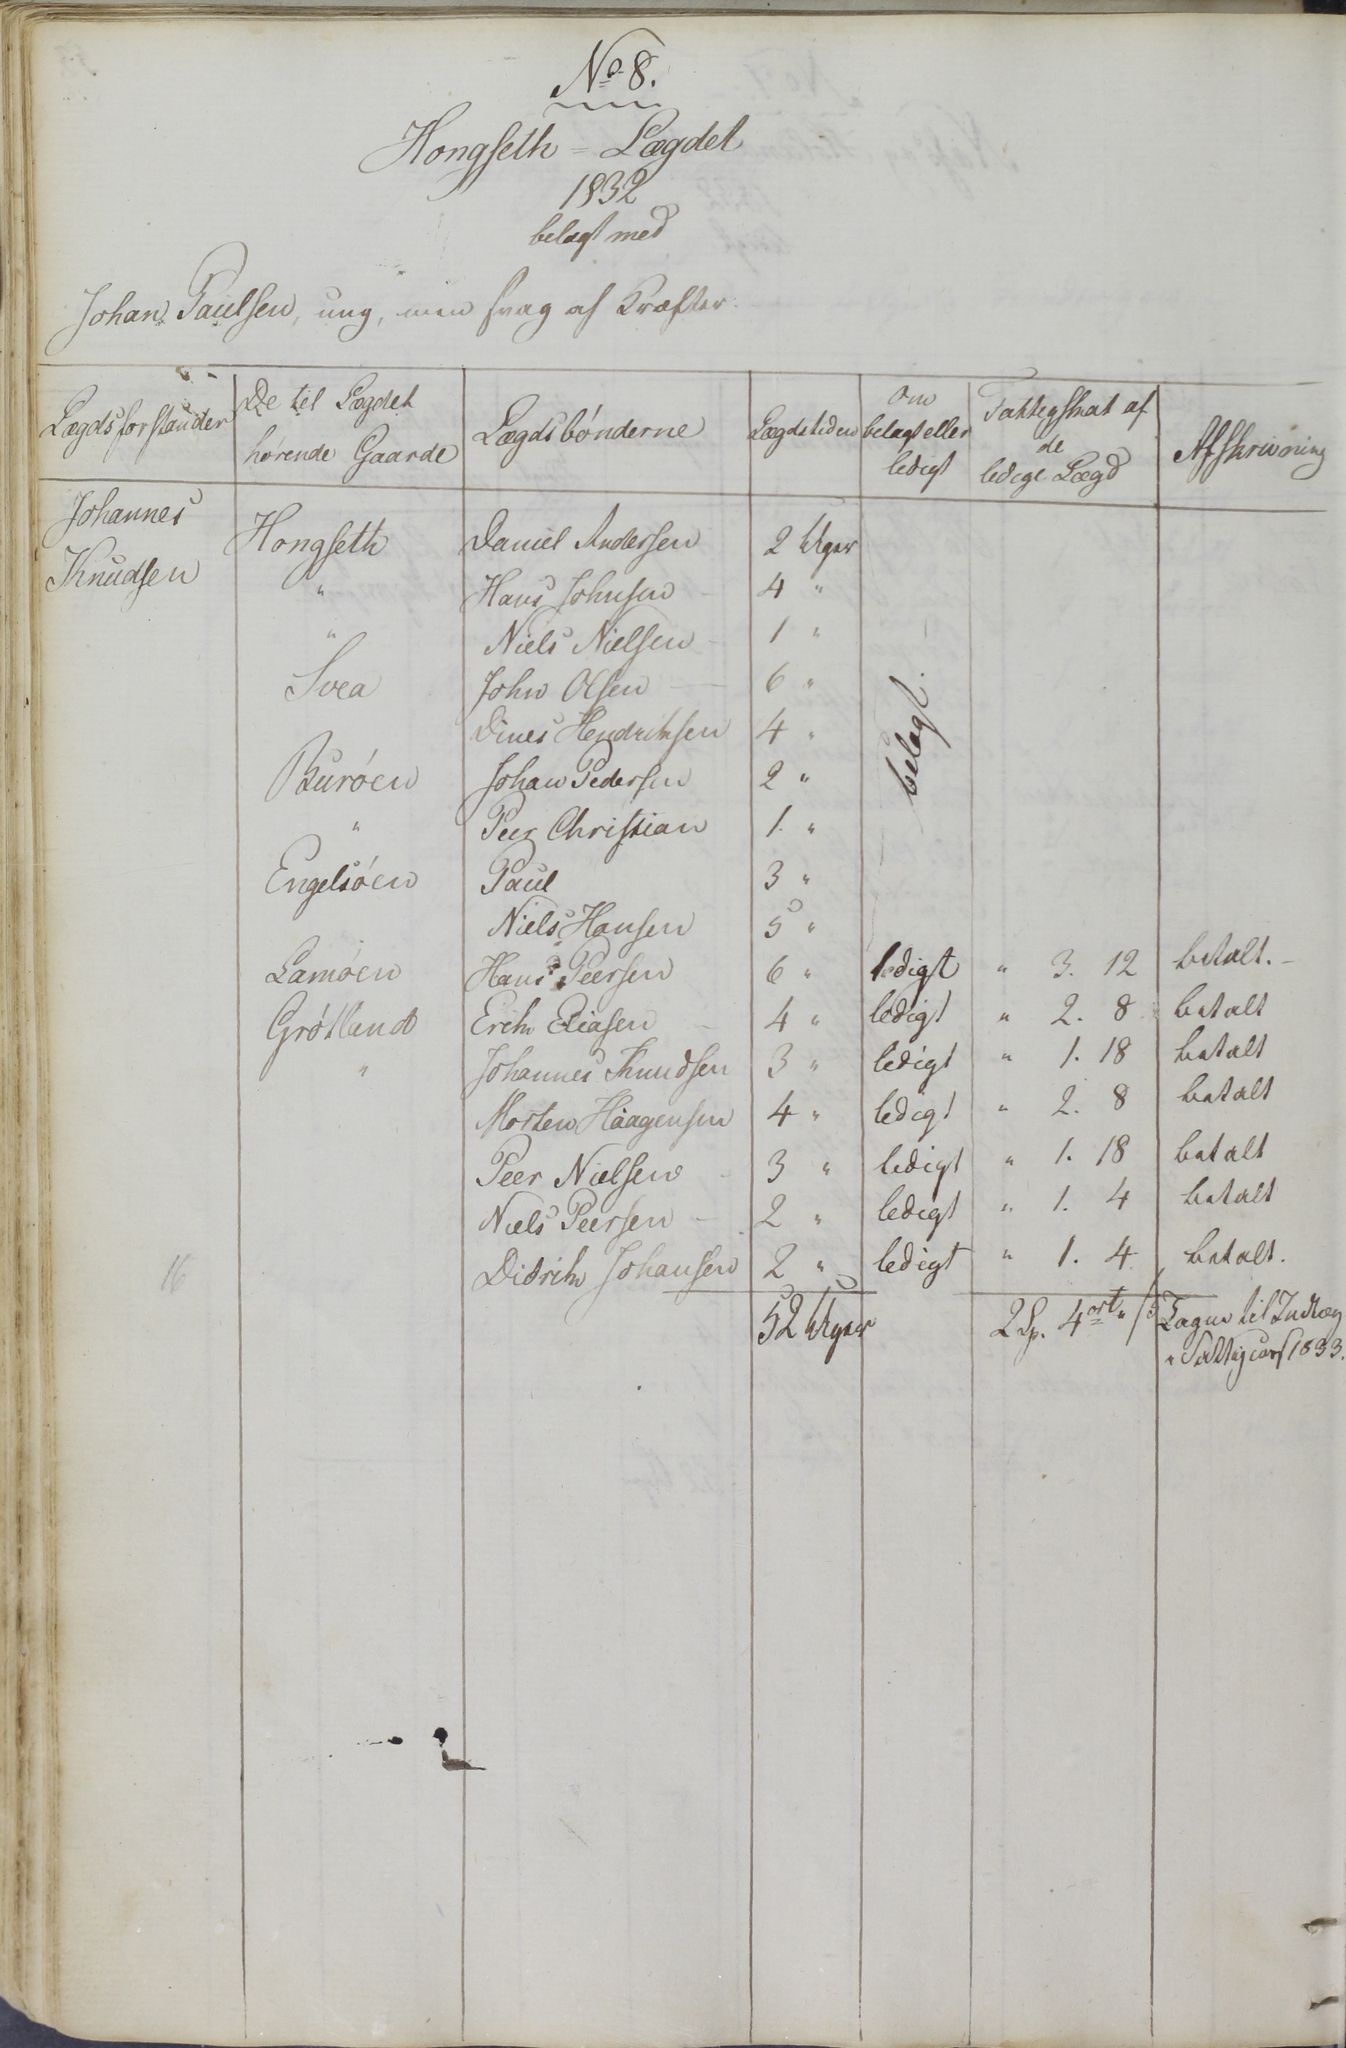 No 8.
Hongseth = Lægdet
1832
belagt med
Johan Paulsen, ung, men svag af Kræfter.
Lægdsforstander | De til Lægdet hørende Gaarde | Lægdsbønderne | Lægdstiden | om belagt eller ledigt | Fattigskat af de ledige Lægd | Afskrivning
Johannes Knudsen | Hongseth | Daniel Andersen | 2 Uger | belagt.
" | Hans Johnsen | 4 "
" | Niels Nielsen | 1 "
Svea | John Olsen | 6 "
Dines Hendriksen | 4 "
Burøen | Johan Pedersen | 2 "
" | Peer Christian | 1. "
Engelsøen | Paul | 3 "
Niels Hansen | 5 "
Lamøen | Hans Peersen | 6 " | ledigt | " 3. 12 | betalt.
Grøtland | Erik Eliasen | 4 " | ledigt | " 2. 8 | betalt
" | Johannes Knudsen | 3 " | ledigt | " 1. 18 | betalt
Morten Haagensen | 4 " | ledigt | " 2. 8 | betalt
Peer Nielsen | 3 " | ledigt | " 1. 18 | betalt
Niels Peersen | 2 " | ledigt | " 1. 4 | betalt
16 | Didrik Johansen | 2 " | ledigt | " 1. 4 | betalt.
52 Uger | 2 Sp. 4 ort " | Tagne til Indtæg
1833.